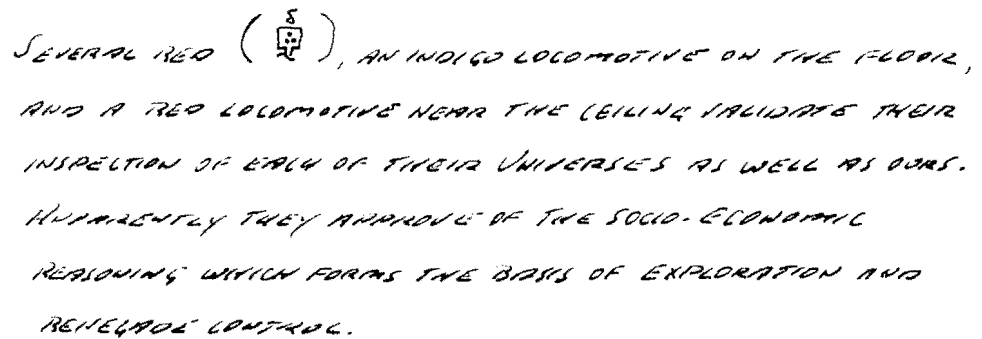 SEVERAL RED ( ), AN INDIGO LOCOMOTIVE ON THE FLOOR,
AND A RED LOCOMOTIVE NEAR THE CEILING VALIDATE THEIR
INSPECTION OF EACH OF THEIR UNIVERSES AS WELL AS OURS.
APPARENTLY THEY APPROVE OF THE SOCIO-ECONOMIC
REASONING WHICH FORMS THE BASIS OF EXPLORATION AND
RENEGADE CONTROL.